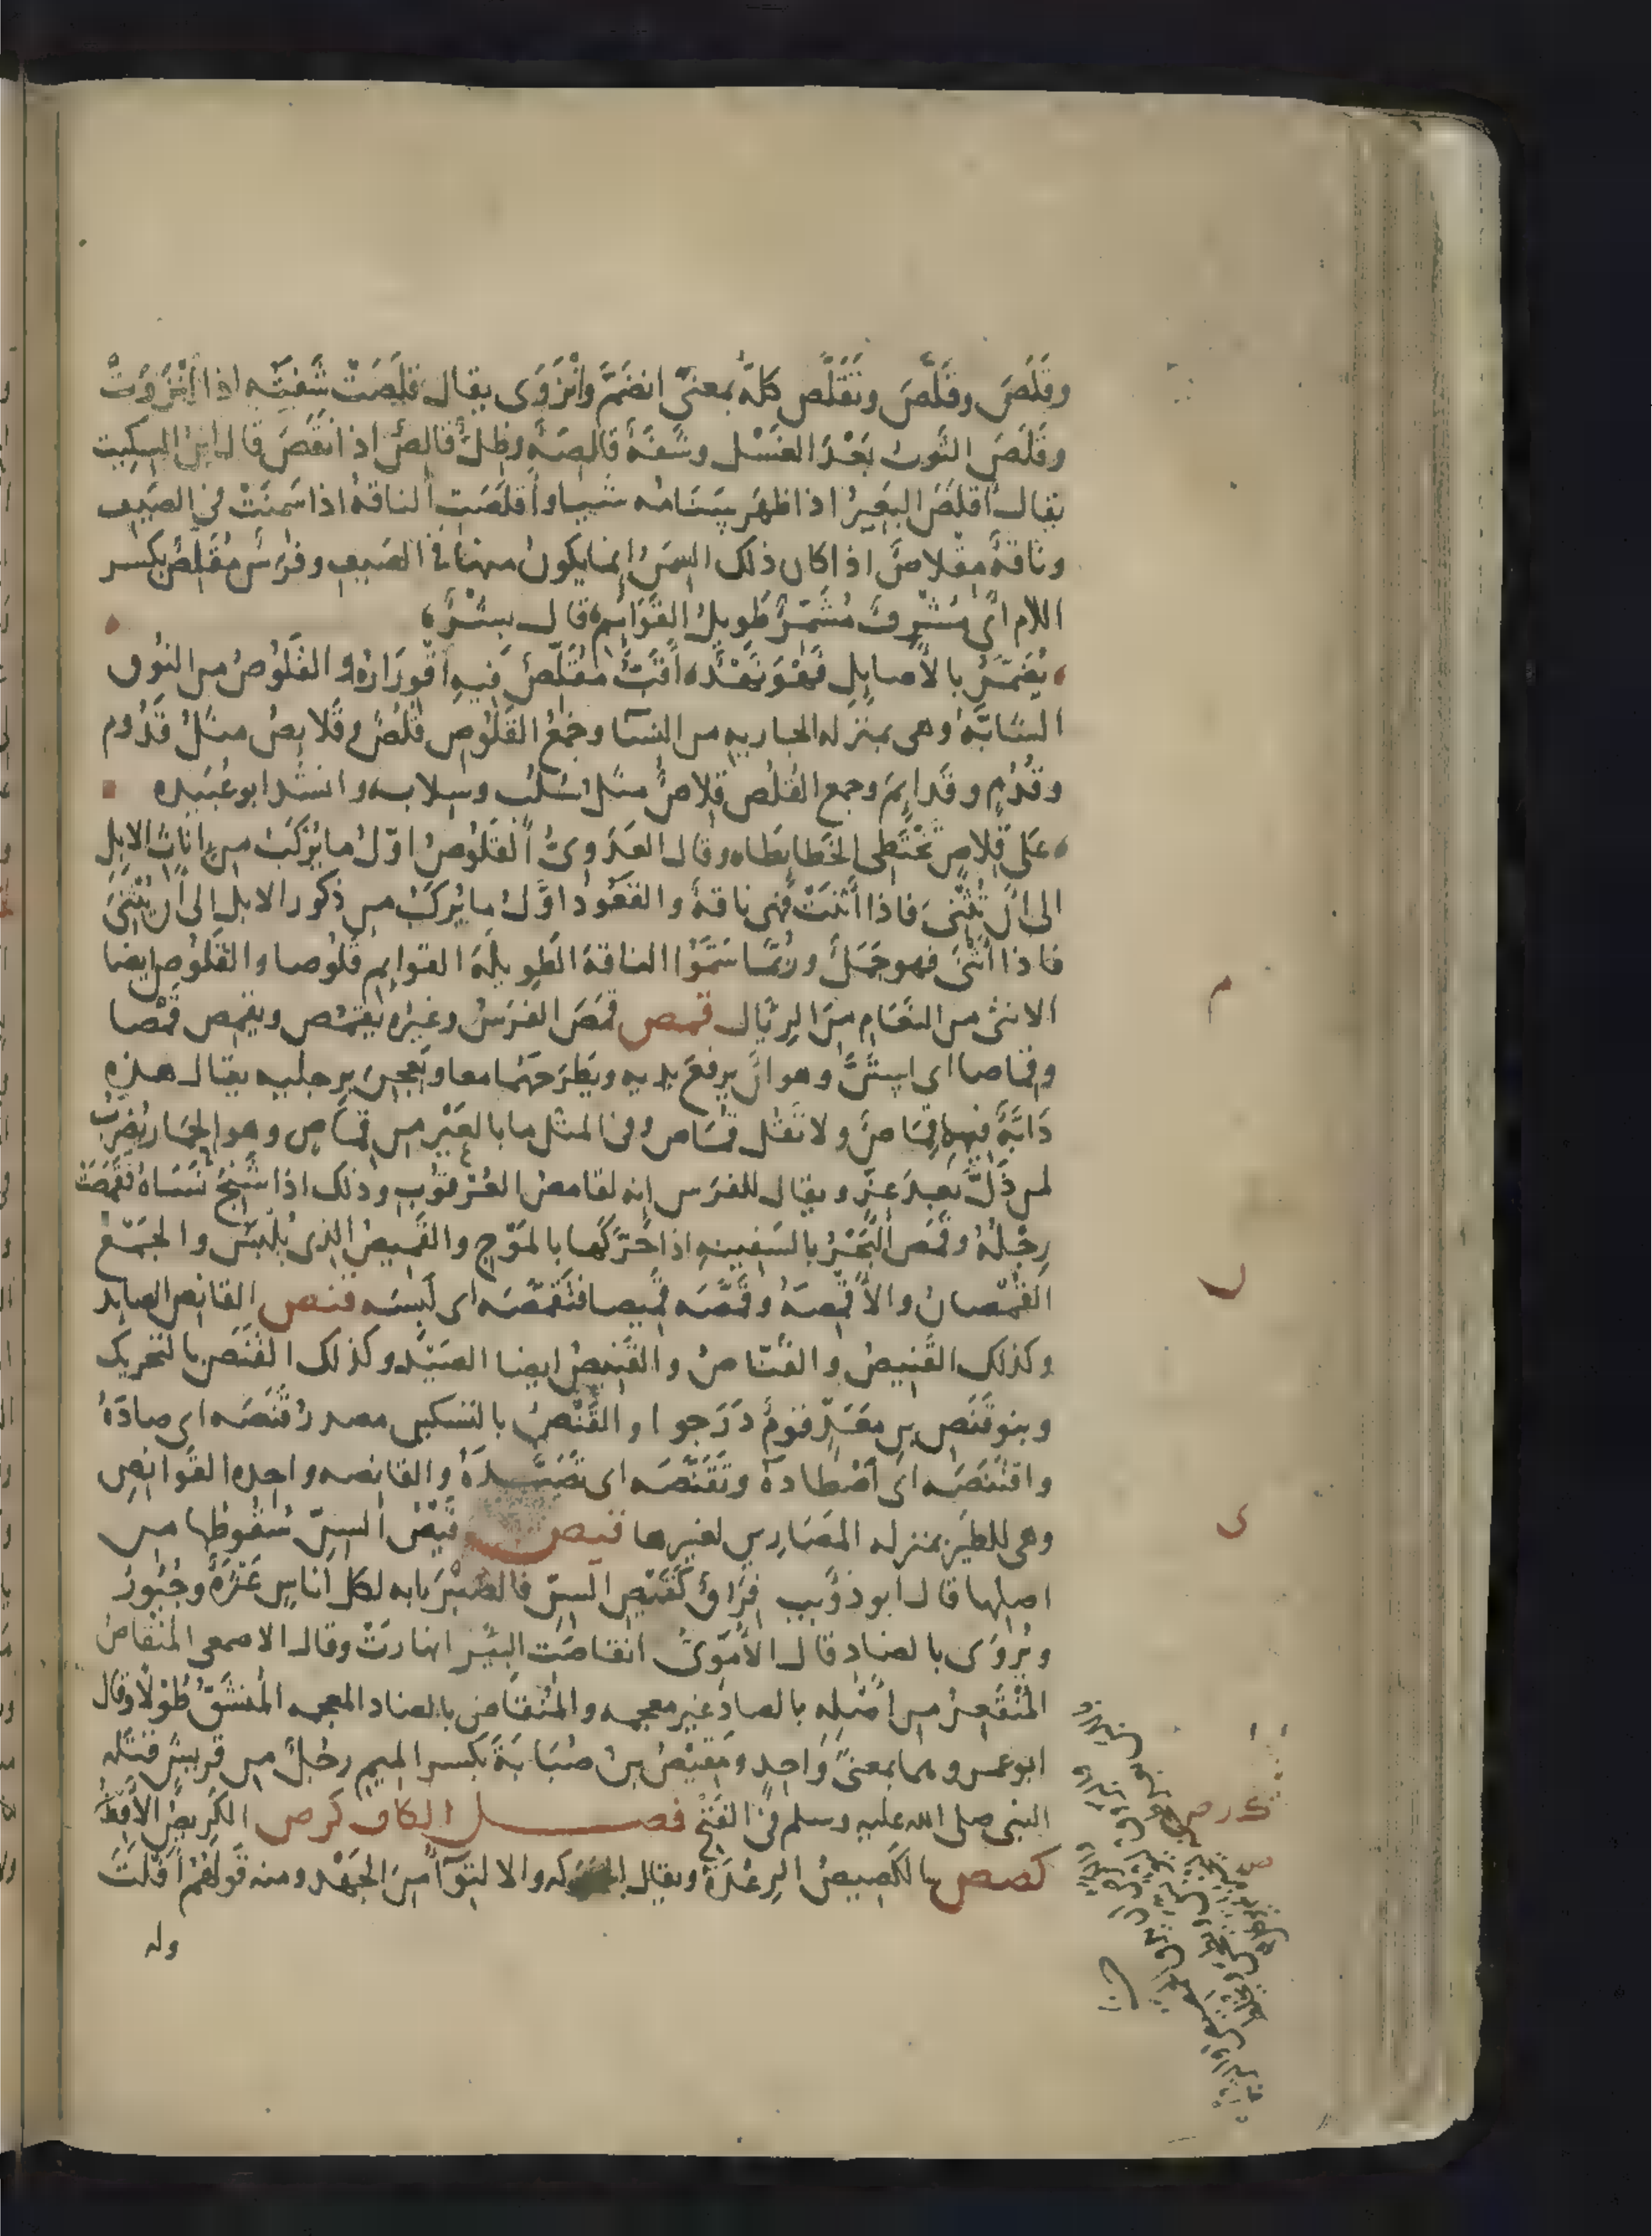 وقَلَصَ وقَلَّصَ وتَقَلَّصَ كلّه بمعنىً انضَمَّ وانْزَوَى يقال قلَصَتْ شَفَتُه اذا انْزَوَتْ
وقَلَصَ الثَّوبُ بَعْدَ الغَسْل وشَفَةٌ قالِصَةٌ وظِلٌّ قالِصٌ اذا نقَصَ قال ابن السكيت
يقال أقلَصَ البَعِيرُ اذا ظهَر سَنَامُه شيا وأقلَصَتِ الناقةُ اذا سَمِنَتْ في الصَيف
وناقةٌ مِقْلاصٌ اذا كان ذلك السِمَنُ إنما يكون منها في الصَيفِ وفَرَسٌ مُقَلِّصٌ بكسر
اللام أى مُشْرِفٌ مُشَمِّرٌ طَوِيلُ القَوَائِم قال بِشْرٌ
يُضَمَّرُ بالأصايِلِ فَهْوَ نَهْدٌ أقَبُّ مُقَلِّصٌ فيهِ اقْوِرَارُ والقَلُوصُ من النُوق
الشابّةُ وهى بمنزله الجاريه من النسا وجَمْعُ القَلُوصِ قُلُصٌ وقَلايِصُ مثلُ قَدُوم
وقُدُمٍ وقَدايِمَ وجمع القُلُص قِلاصٌ مثل سُلُبٍ وسِلابٍ وانشد ابو عُبَيده
عَلى قِلاصٍ تَخْتَطِى الخَطايطَا وقال العَدَوِىُّ القَلُوصُ اوّلُ ما يُرْكَبُ من إناثِ الابِلِ
الى أن تُثْنِىَ فاذا أثنَتْ فهى ناقةٌ والقَعُودُ اوّلُ ما يُركَبُ من ذكور الابل الى أن يُثْنِىَ
فاذا أثنَى فهو جَمَلٌ ورُبّما سَمَّوُا الناقةَ الطَوِيلَةَ القوايِمِ قَلُوصا والقَلُوصُ ايضا
الانثى من النَعَامِ مِنَ الرِئال قمص قَمَصَ الفَرَسُ وغيرُه يَقمُص ويقمِص قَمْصا
وقِماصا اى استَنَّ وهو أن يرفعَ يديه ويَطرَحَهُما معا ويَعجِنَ برجليه يقال هذه
دَابّةٌ فيها قِمَاصٌ ولا تَقُل قُمَاص وفى المثل ما بالعَيْرِ مِن قِمَاصٍ وهو الحِمَار يُضرَبُ
لمن ذَلّ بعدَ عِزٍّ ويقال للفرَس إنه لقامصُ العُرْقُوبِ وذلك اذا شَنِجَ نَسَاهُ فَقَمَصَتْ
رِجْلُهُ وقَمَصَ البَحْرُ بالسَفِينهِ اذا حَرّكَها بالمَوْجِ والقَمِيصُ الذى يُلْبَسُ والجَمعُ
القُمْصان والأَقْمِصَةُ وقَمَّصَه قَمِيصا فتَقَمَّصَه أى لَبِسَه قنص القانِص الصايد
وكذلك القَنِيصُ والقَنّاصُ والقَنِيصُ ايضا الصَيْدُ وكذلك القَنَصُ بالتحريك
وبنو قَنَصِ بن مَعَدٍّ قومٌ دَرَجوا والقَنْصُ بالتسكين مصدرُ قَنَصَه اى صادَهُ
واقتَنَصَه اى اصْطادَهُ وتَقَنَّصَه اى تَصَيَّدَهُ والقانصه واحده القَوانِصِ
وهى للطَيْرِ بمنزله المَصَارِين لغيرها قيص قَيْصُ السِنِّ سُقُوطُها من
اصلها قال ابو ذؤيب فِرَاقٌ كَقَيْصِ السِنِّ فالصَبْرَ إنه لكل أناسٍ عَثْرَةٌ وجُبُورُ
ويُروَى بالضاد قال الأُمَوِىُّ انقاصَتِ البِئر انهارتْ وقال الاصمعى المُنْقاصُ
المُنْقَعِرُ مِن أصْلِه بالصاد غير معجمه والمُنقاضُ بالضاد المعجمه المُنشَقُّ طُوْلًا وقال
ابو عمرو هما بمعنىً وَاحِدٍ ومِقْيَصُ بن صُبَابَةَ بكسر الميم رجُلٌ من قريش قتَله
النبى صلى الله عليه وسلم فى الفَتْح فصل الكاف كرص الكَرِيصُ الأَقِطُ
كصص الكَصِيصُ الرِعْدَةُ ويقال الحركه والالتِوَآءُ مِنَ الجَهْد ومنه قَولُهُمْ أَفْلَتَ
وله
م
ل
ى
ك ر ص
ص